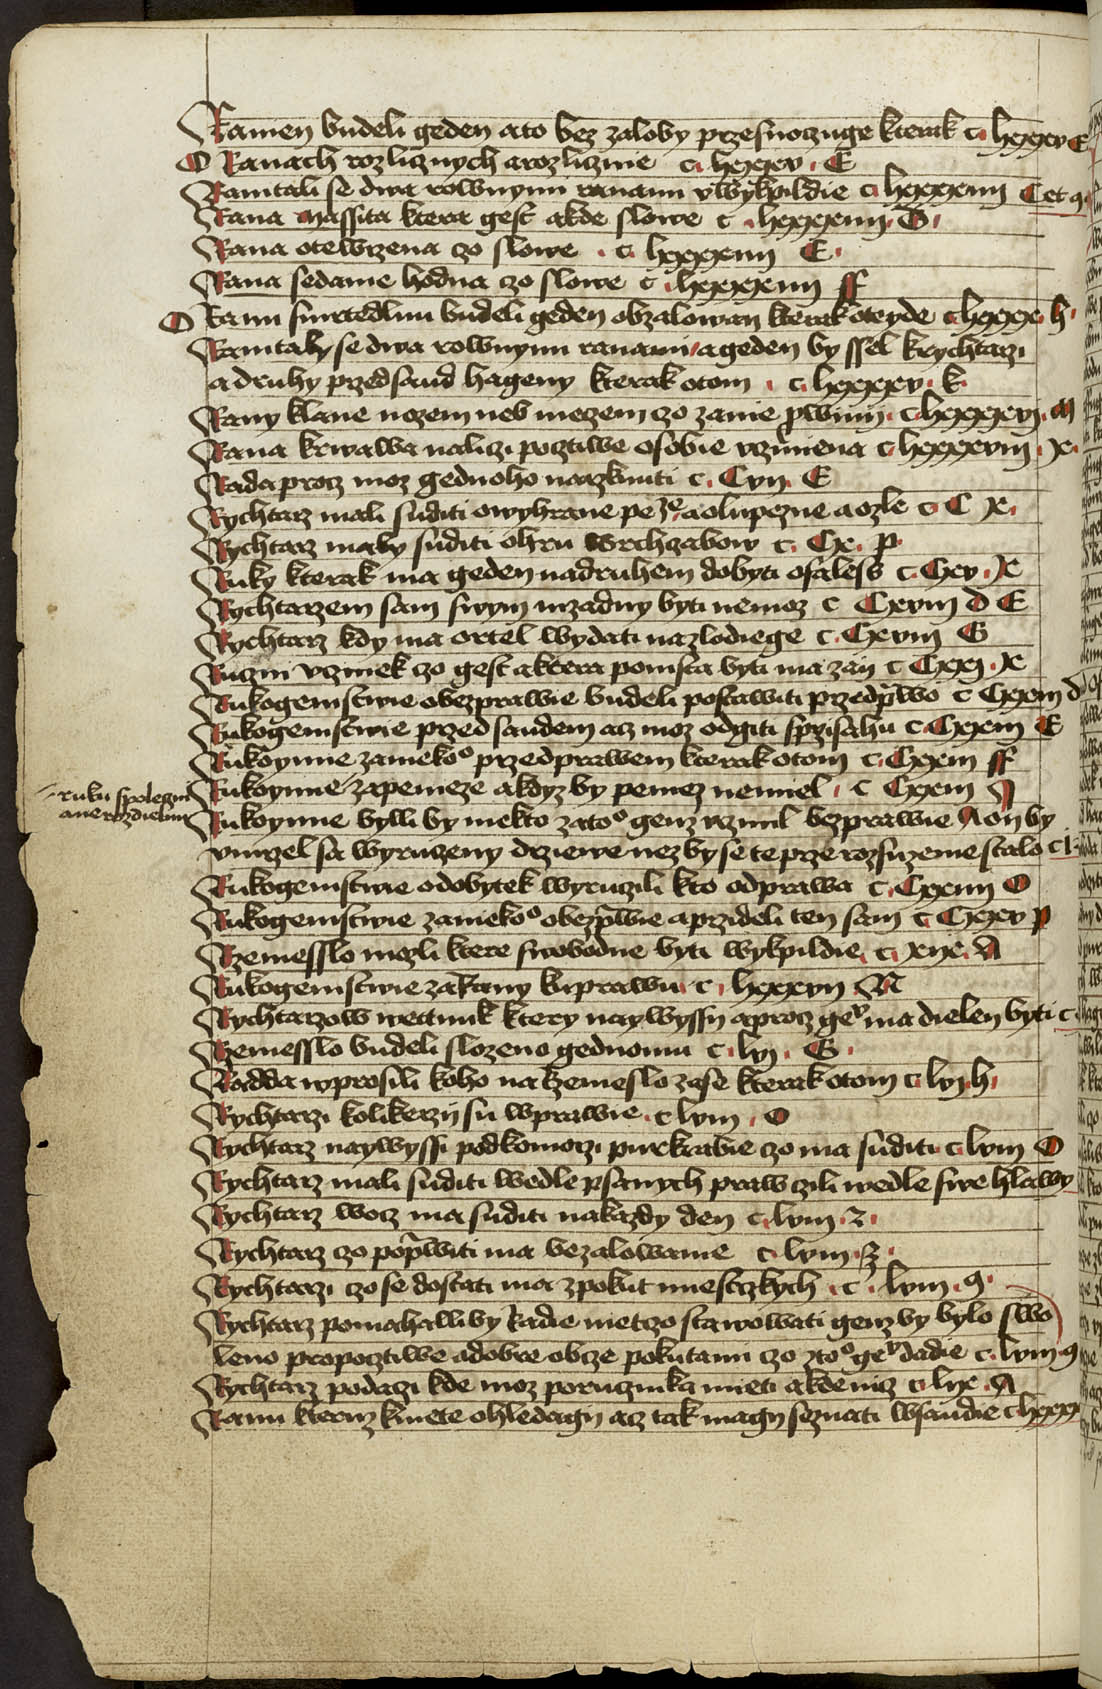 Ranien budeli geden ato bez zaloby przesnoczuge kterak c. lxxxv E
O Ranach rozlicznych arozlicznie c. lxxxv. E
Ranitali se dwa rownymi ranami vwykpildie c. lxxxxiiii C et q.
Rana massita ktera gest akde slowe c. lxxxxiiii. D.
Rana otewrzena czo slowe. c. lxxxxiiii E.
Rana sedanie hodna czo slowe c. lxxxxiiii ff
O Ranu smrtedlnu budeli geden obzalowan kterak oteyde c. lxxxx. h.
Ranitaly se dwa rownymi ranami, ageden by ssel krychtarzi
adruhy przed saud hageny kterak otom. c. lxxxxv. k.
Rany klane nozem neb meczem czo zanie pwinij. c. lxxxxvj. m
Rana krwawa naliczi pocztiwe osobie vcziniena c. lxxxxviij. X.
Rada procz moz gednoho nazkniti c. Cvij. E
Rychtarz mali suditi owyhrane peze, aolupezne aozle c. C X.
Rychtarz malby suditi ohru wrchczabow c. Cx. p.
Ruky kterak ma geden nadruhem dobyti osaless c. Cxv. X
Rychtarzem sam swym urzadny byti nemoz c Cxviij d E
Rychtarz kdy ma ortel wydati nazlodiege c. Cxviij G
Ruczni vczinek czo gest aktera pomsta byti ma zan c Cxxj. X
Rukogemstwie obezprawie budeli postawiti przedpwo c Cxxiij d
Rukogemstwie przed saudem acz moz odgiti sprzisahu c. Cxxiij E
Rukoymie zanieko° przedprawem kterak otom c. Cxxiij ff
Rukoymie zapenieze akdyz by peniez nemiel. c Cxxiij A
ruku spolegni
anerozdielnu
Rukoymie bylliby niekto zato° genz vczinil bezprawie A on by
vmrzel sa wyruczeny drziewe nez by se te prze rozsuzenie stalo c l
Rukogemstwie odobytek wyruczili kto odprawa c. Cxxiiii O
Rukogemstwie zanieko° obezpwie aprzideli ten sam c Cxxv p
Rzemesslo mezli ktere swobodne byti wykpildie. c. xix. A
Rukogemstwie zakany kuprawu c. lxxxvij. N
Rychtarzow wettnik ktery naywyssij aprocz gey ma dielen byti c
Rzemesslo budeli slozeno gednomu c. lvj. G.
Radda wprosili koho na rzemeslo zase kterak otom c. lvj h.
Rychtarzi kolikerzij su wprawie. c lviij. O
Rychtarz naywyssi podkomorzi purkrabie czo ma suditi c. lviij O
Rychtarz mali suditi wedle psanych praw czili wedle swe hlawy
Rychtarz wocz ma suditi nakazdy den c. lviij. z.
Rychtarz czo popwiti ma bezalowanie c. lviij. z.
Rychtarzi czo se dostati ma zpokut miestczkych. c. lviij. 9.
Rychtarz pomahalliby Radie nietczo stawowati genz by bylo swo
leno propocztiwe adobre obcze pokutami czo zto° gey dadie c. lviij. 9
Rychtarz podaczi kde moz porucznika mieti akde nicz c. lix. A
Ranu kteruz kmete ohledagij acz tak magij seznati wsaudie c. lxxxx